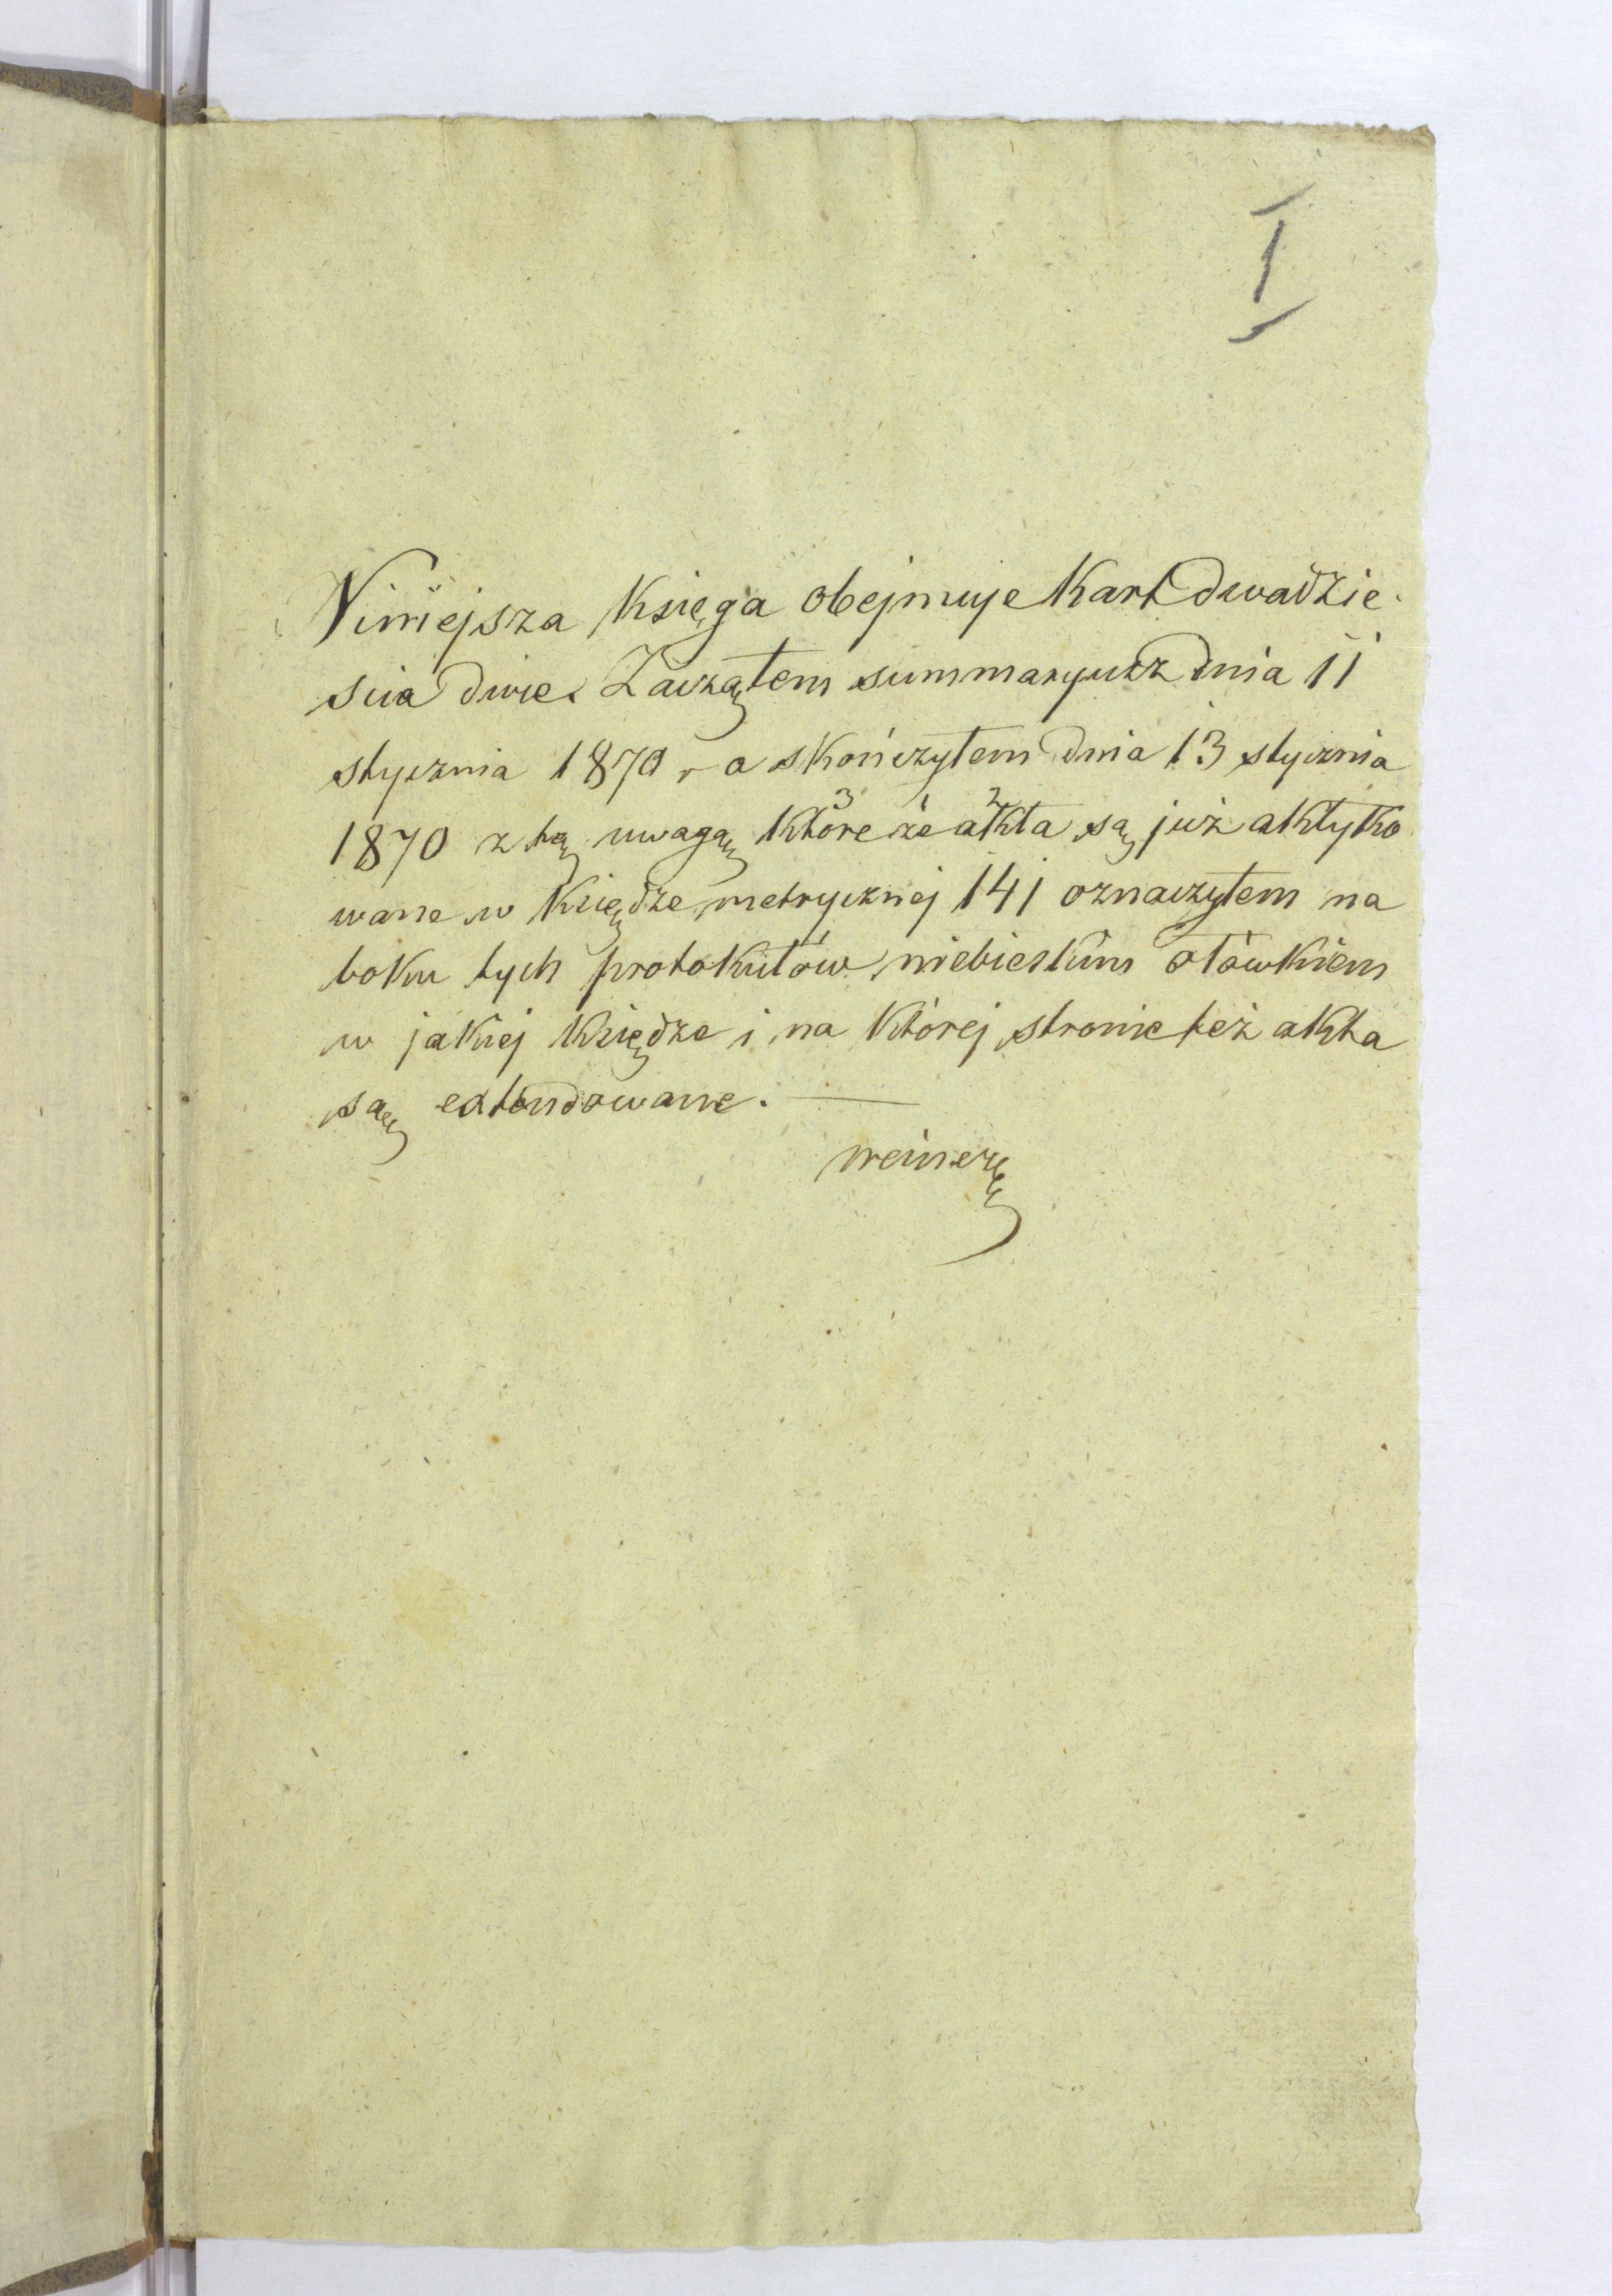 I
Niniejsza Księga obejmuje Kart dwadzie
scia dwie. Zacząłem summaryusz dnia 11
stycznia 1870 r a skończyłem dnia 13 stycznia
1870 z tą uwagą któreże akta są już aktyko
wane w Księdze metrycznej 141 oznaczyłem na
boku tych protokułów niebieskim ołówkiem
w jakiej Księdze i na której stronie też akta
są extendowane. —